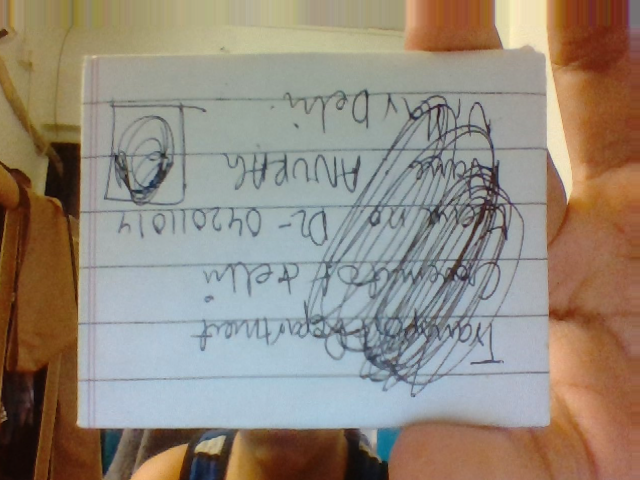 Transport Department
Goverment of delhi
Licence no DL-042011014
Name ANURAG
Delhi